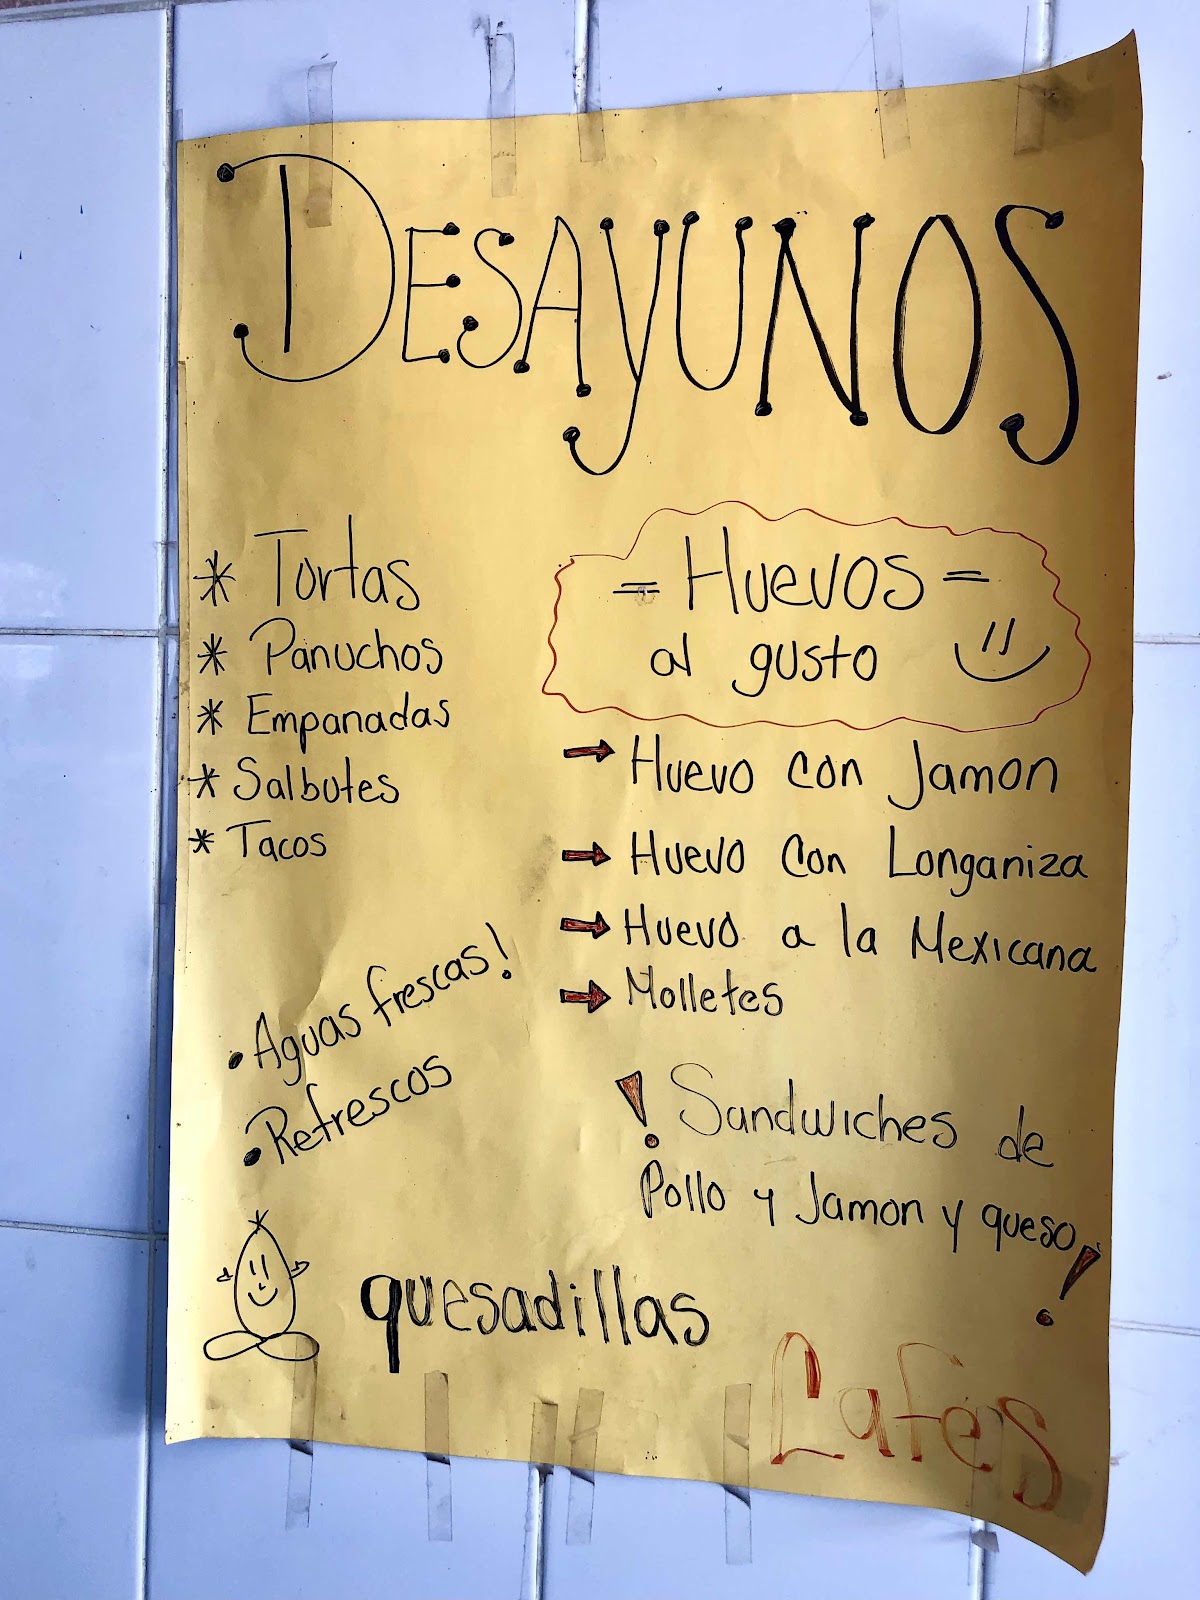 DESAYUNOS
* Tortas
* Panuchos
* Empanadas
* Salbutes
* Tacos
= Huevos =
al gusto
→ Huevo con Jamon
→ Huevo con Longaniza
→ Huevo a la Mexicana
→ Molletes
• Aguas frescas!
• Refrescos
! Sandwiches de
Pollo y Jamon y queso !
quesadillas
Cafes